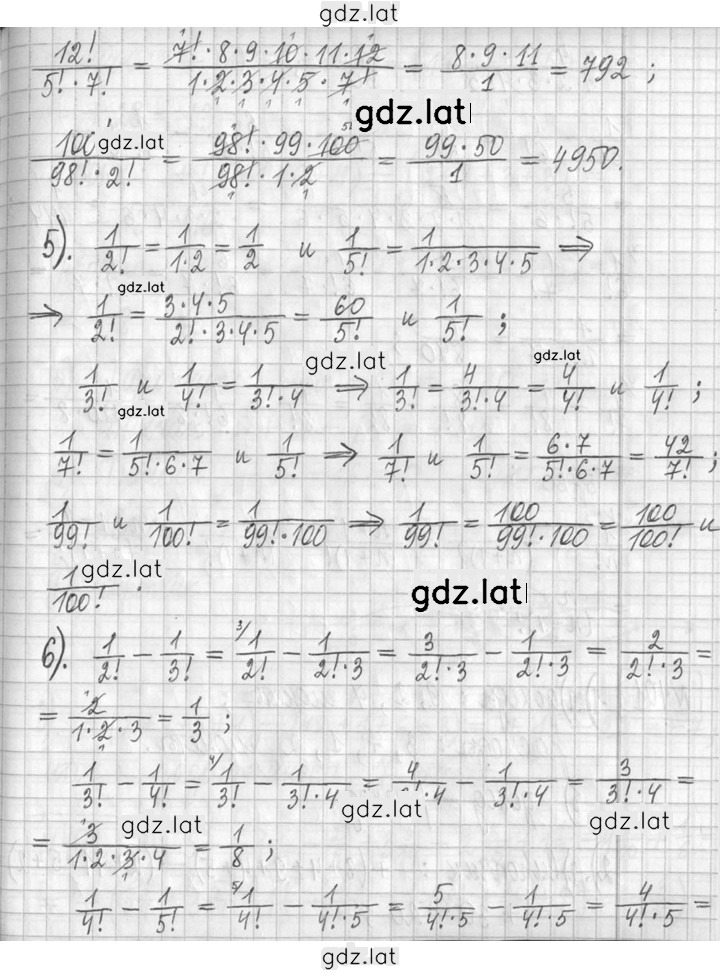 gdz.lat
12!/(5!·7!) = (7!·8·9·10·11·12)/(1·2·3·4·5·7!) = (8·9·11)/1 = 792 ;
gdz.lat
gdz.lat
100!/(98!·2!) = (98!·99·100)/(98!·1·2) = (99·50)/1 = 4950.
5). 1/2! = 1/(1·2) = 1/2 и 1/5! = 1/(1·2·3·4·5) ⇒
gdz.lat
⇒ 1/2! = (3·4·5)/(2!·3·4·5) = 60/5! и 1/5! ;
gdz.lat
gdz.lat
1/3! и 1/4! = 1/(3!·4) ⇒ 1/3! = 4/(3!·4) = 4/4! и 1/4! ;
gdz.lat
1/7! = 1/(5!·6·7) и 1/5! ⇒ 1/7! и 1/5! = (6·7)/(5!·6·7) = 42/7! ;
1/99! и 1/100! = 1/(99!·100) ⇒ 1/99! = 100/(99!·100) = 100/100! и
gdz.lat
1/100! .
gdz.lat
6). 1/2! - 1/3! = 3/ 1/2! - 1/(2!·3) = 3/(2!·3) - 1/(2!·3) = 2/(2!·3) =
= 2/(1·2·3) = 1/3 ;
1/3! - 1/4! = 4/ 1/3! - 1/(3!·4) = 4/(3!·4) - 1/(3!·4) = 3/(3!·4) =
gdz.lat
gdz.lat
gdz.lat
= 3/(1·2·3·4) = 1/8 ;
1/4! - 1/5! = 5/ 1/4! - 1/(4!·5) = 5/(4!·5) - 1/(4!·5) = 4/(4!·5) =
gdz.lat